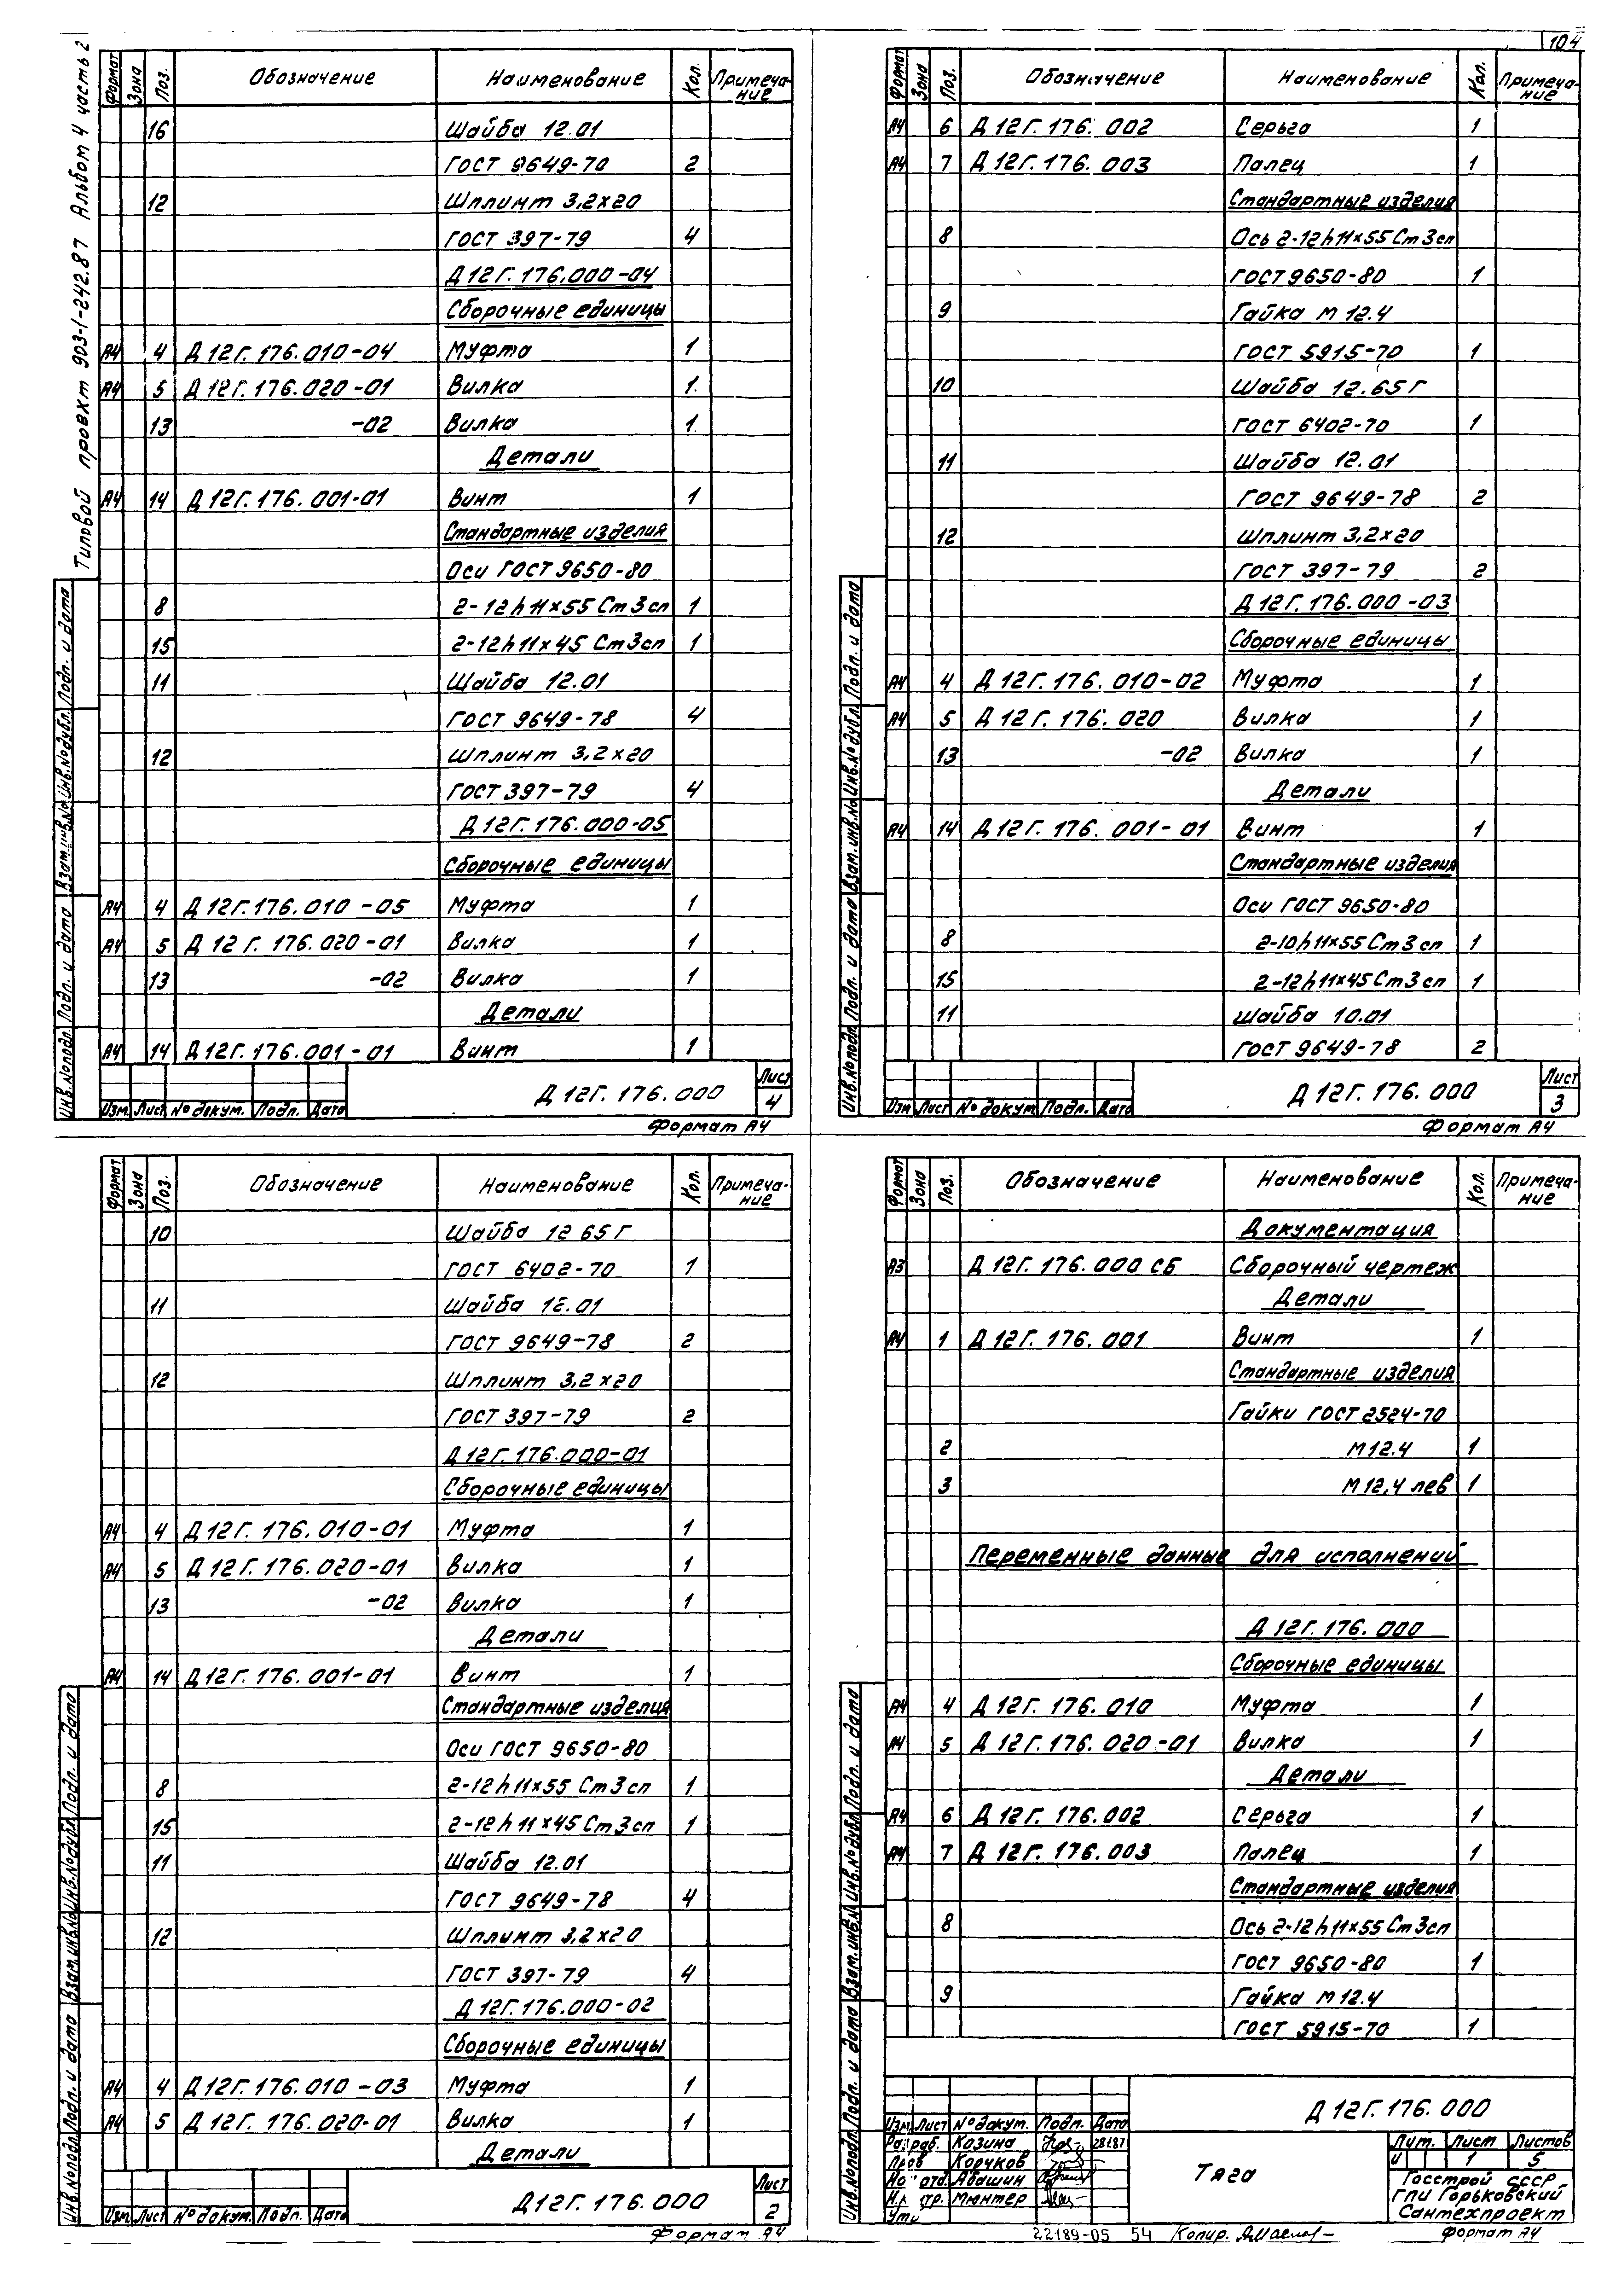 104
Типовой проект 903-1-242.87 Альбом 4 часть 2
Формат Зона Поз. Обозначение Наименование Кол. Примеча-
ние
16 Шайба 12.01
ГОСТ 9649-70 2
12 Шплинт 3,2×20
ГОСТ 397-79 4
Д 12Г.176.000-04
Сборочные единицы
А4 4 Д 12Г.176.010-04 Муфта 1
А4 5 Д 12Г.176.020-01 Вилка 1
13 -02 Вилка 1
Детали
А4 14 Д 12Г.176.001-01 Винт 1
Стандартные изделия
Оси ГОСТ 9650-80
8 2-12h11×55 Ст3сп 1
15 2-12h11×45 Ст3сп 1
11 Шайба 12.01
ГОСТ 9649-78 4
12 Шплинт 3,2×20
ГОСТ 397-79 4
Д 12Г.176.000-05
Сборочные единицы
А4 4 Д 12Г.176.010-05 Муфта 1
А4 5 Д 12Г.176.020-01 Вилка 1
13 -02 Вилка 1
Детали
А4 14 Д 12Г.176.001-01 Винт 1
Инв.№подл. Подп. и дата Взам.инв.№ Инв.№дубл. Подп. и дата
Изм. Лист №докум. Подп. Дата
Д 12Г.176.000
Лист
4
Формат А4
Формат Зона Поз. Обозначение Наименование Кол. Примеча-
ние
А4 6 Д 12Г.176.002 Серьга 1
А4 7 Д 12Г.176.003 Палец 1
Стандартные изделия
8 Ось 2-12h11×55 Ст3сп
ГОСТ 9650-80 1
9 Гайка М12.4
ГОСТ 5915-70 1
10 Шайба 12.65Г
ГОСТ 6402-70 1
11 Шайба 12.01
ГОСТ 9649-78 2
12 Шплинт 3,2×20
ГОСТ 397-79 2
Д 12Г.176.000-03
Сборочные единицы
А4 4 Д 12Г.176.010-02 Муфта 1
А4 5 Д 12Г.176.020 Вилка 1
13 -02 Вилка 1
Детали
А4 14 Д 12Г.176.001-01 Винт 1
Стандартные изделия
Оси ГОСТ 9650-80
8 2-10h11×55 Ст3сп 1
15 2-12h11×45 Ст3сп 1
11 Шайба 10.01
ГОСТ 9649-78 2
Инв.№подл. Подп. и дата Взам.инв.№ Инв.№дубл. Подп. и дата
Изм Лист №докум. Подп. Дата
Д 12Г.176.000
Лист
3
Формат А4
Формат Зона Поз. Обозначение Наименование Кол. Примеча-
ние
10 Шайба 12 65Г
ГОСТ 6402-70 1
11 Шайба 12.01
ГОСТ 9649-78 2
12 Шплинт 3,2×20
ГОСТ 397-79 2
Д 12Г.176.000-01
Сборочные единицы
А4 4 Д 12Г.176.010-01 Муфта 1
А4 5 Д 12Г.176.020-01 Вилка 1
13 -02 Вилка 1
Детали
А4 14 Д 12Г.176.001-01 Винт 1
Стандартные изделия
Оси ГОСТ 9650-80
8 2-12h11×55 Ст3сп 1
15 2-12h11×45 Ст3сп 1
11 Шайба 12.01
ГОСТ 9649-78 4
12 Шплинт 3,2×20
ГОСТ 397-79 4
Д 12Г.176.000-02
Сборочные единицы
А4 4 Д 12Г.176.010-03 Муфта 1
А4 5 Д 12Г.176.020-01 Вилка 1
Детали
Инв.№подл. Подп. и дата Взам.инв.№ Инв.№дубл. Подп. и дата
Изм. Лист №докум. Подп. Дата
Д 12Г.176.000
Лист
2
Формат А4
Формат Зона Поз. Обозначение Наименование Кол. Примеча-
ние
Документация
А3 Д 12Г.176.000 СБ Сборочный чертеж
Детали
А4 1 Д 12Г.176.001 Винт 1
Стандартные изделия
Гайки ГОСТ 2524-70
2 М12.4 1
3 М12.4 лев 1
Переменные данные для исполнений
Д 12Г.176.000
Сборочные единицы
А4 4 Д 12Г.176.010 Муфта 1
А4 5 Д 12Г.176.020-01 Вилка 1
Детали
А4 6 Д 12Г.176.002 Серьга 1
А4 7 Д 12Г.176.003 Палец 1
Стандартные изделия
8 Ось 2-12h11×55 Ст3сп
ГОСТ 9650-80 1
9 Гайка М12.4
ГОСТ 5915-70 1
Инв.№подл. Подп. и дата Взам.инв.№ Инв.№дубл. Подп. и дата
Д 12Г.176.000
Изм. Лист №докум. Подп. Дата
Разраб. Козина 28187
Пров Корчков
Нач отд. Абашин
Н.контр. Мюнтер
Утв
Тяга
Лит. Лист Листов
И 1 5
Госстрой СССР
ГПИ Горьковский
Сантехпроект
22189-05 54 Копир. Формат А4